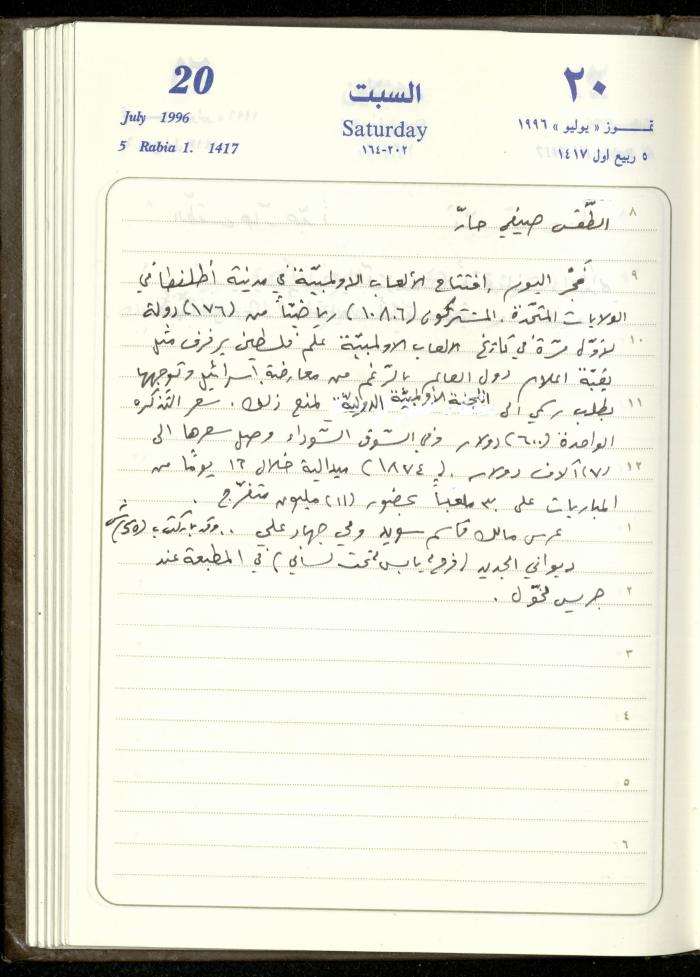 20
July 1996
5 Rabia 1. 1417
السبت
Saturday
٢٠٢-١٦٤
٢٠
تمـــوز « يوليو » ١٩٩٦
٥ ربيع اول ١٤١٧
٨ الطّقس صيفي حارّ
٩ فجر اليوم إفتتاح الألعاب الاولمبيّة في مدينة أطلنطا في
الولايات المتّحدة. المشتركون (١٠٨٠٦) رياضيّاً من (١٧٦) دولة
١٠ لأوّل مرّة في تاريخ الالعاب الاولمبيّة علم فلسطين يرفرف مثل
بقيّة اعلام دول العالم بالرّغم من معارضة إسرائيل وتوجهها
١١ بطلب رسمي الى اللجنة الأولمبيّة الدوليّة لمنع ذلك. سعر التّذكره
الواحدة (٦٠٠) دولار وفي السّوق السّوداء وصل سعرها الى
١٢ (٧) آلاف دولار. (١٨٧٤) ميدالية خلال ١٦ يومًا من
المباريات على ٣٠ ملعباً بحضور (١١) مليون متفرّج .
١ عرس مالك قاسم سويد وفي جهاد علي .. وقد باركت ب (٥٠) ش
ديواني الجديد (فرح يابس تحت لساني) في المطبعة عند
٢ جريس نحّول .
٣
٤
٥
٦